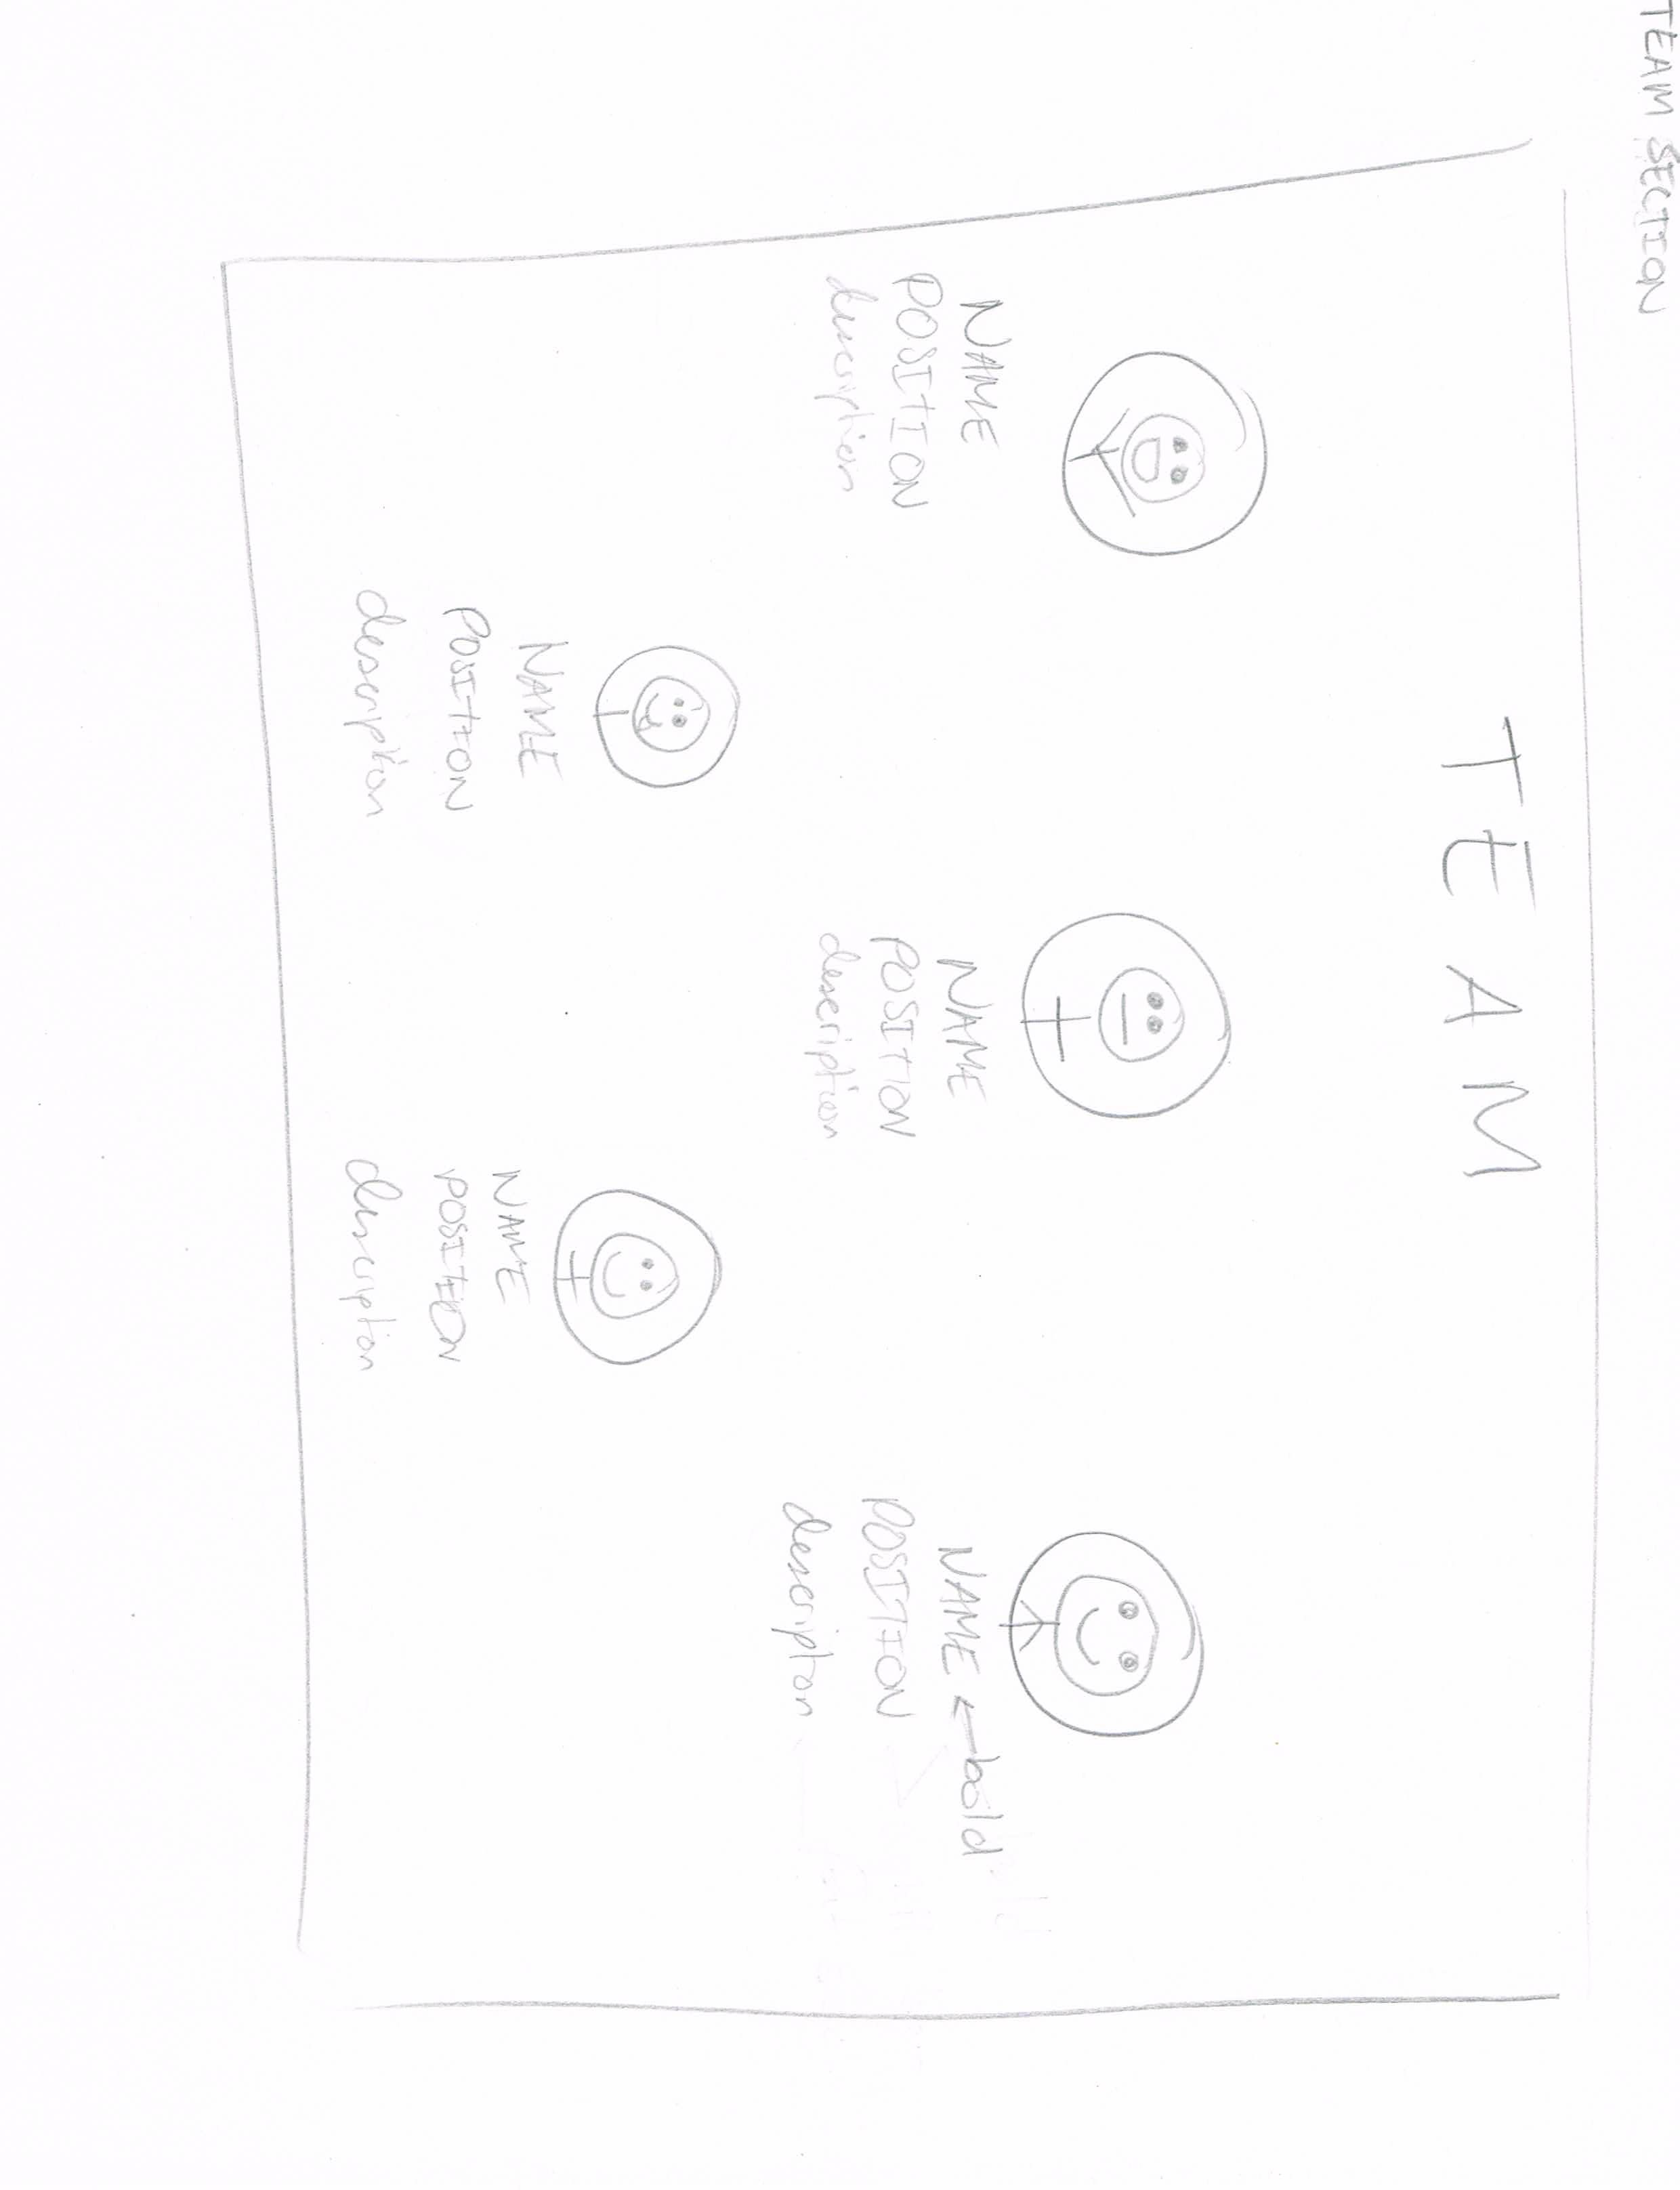 TEAM SECTION
TEAM
NAME
POSITION
description
NAME
POSITION
description
NAME ← bold
POSITION
description
NAME
POSITION
description
NAME
POSITION
description